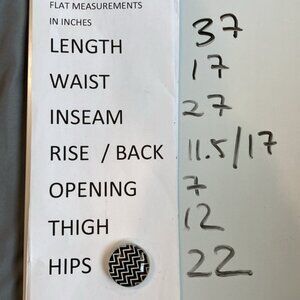 FLAT MEASUREMENTS
IN INCHES
LENGTH 37
WAIST 17
INSEAM 27
RISE / BACK 11.5/17
OPENING 7
THIGH 12
HIPS 22